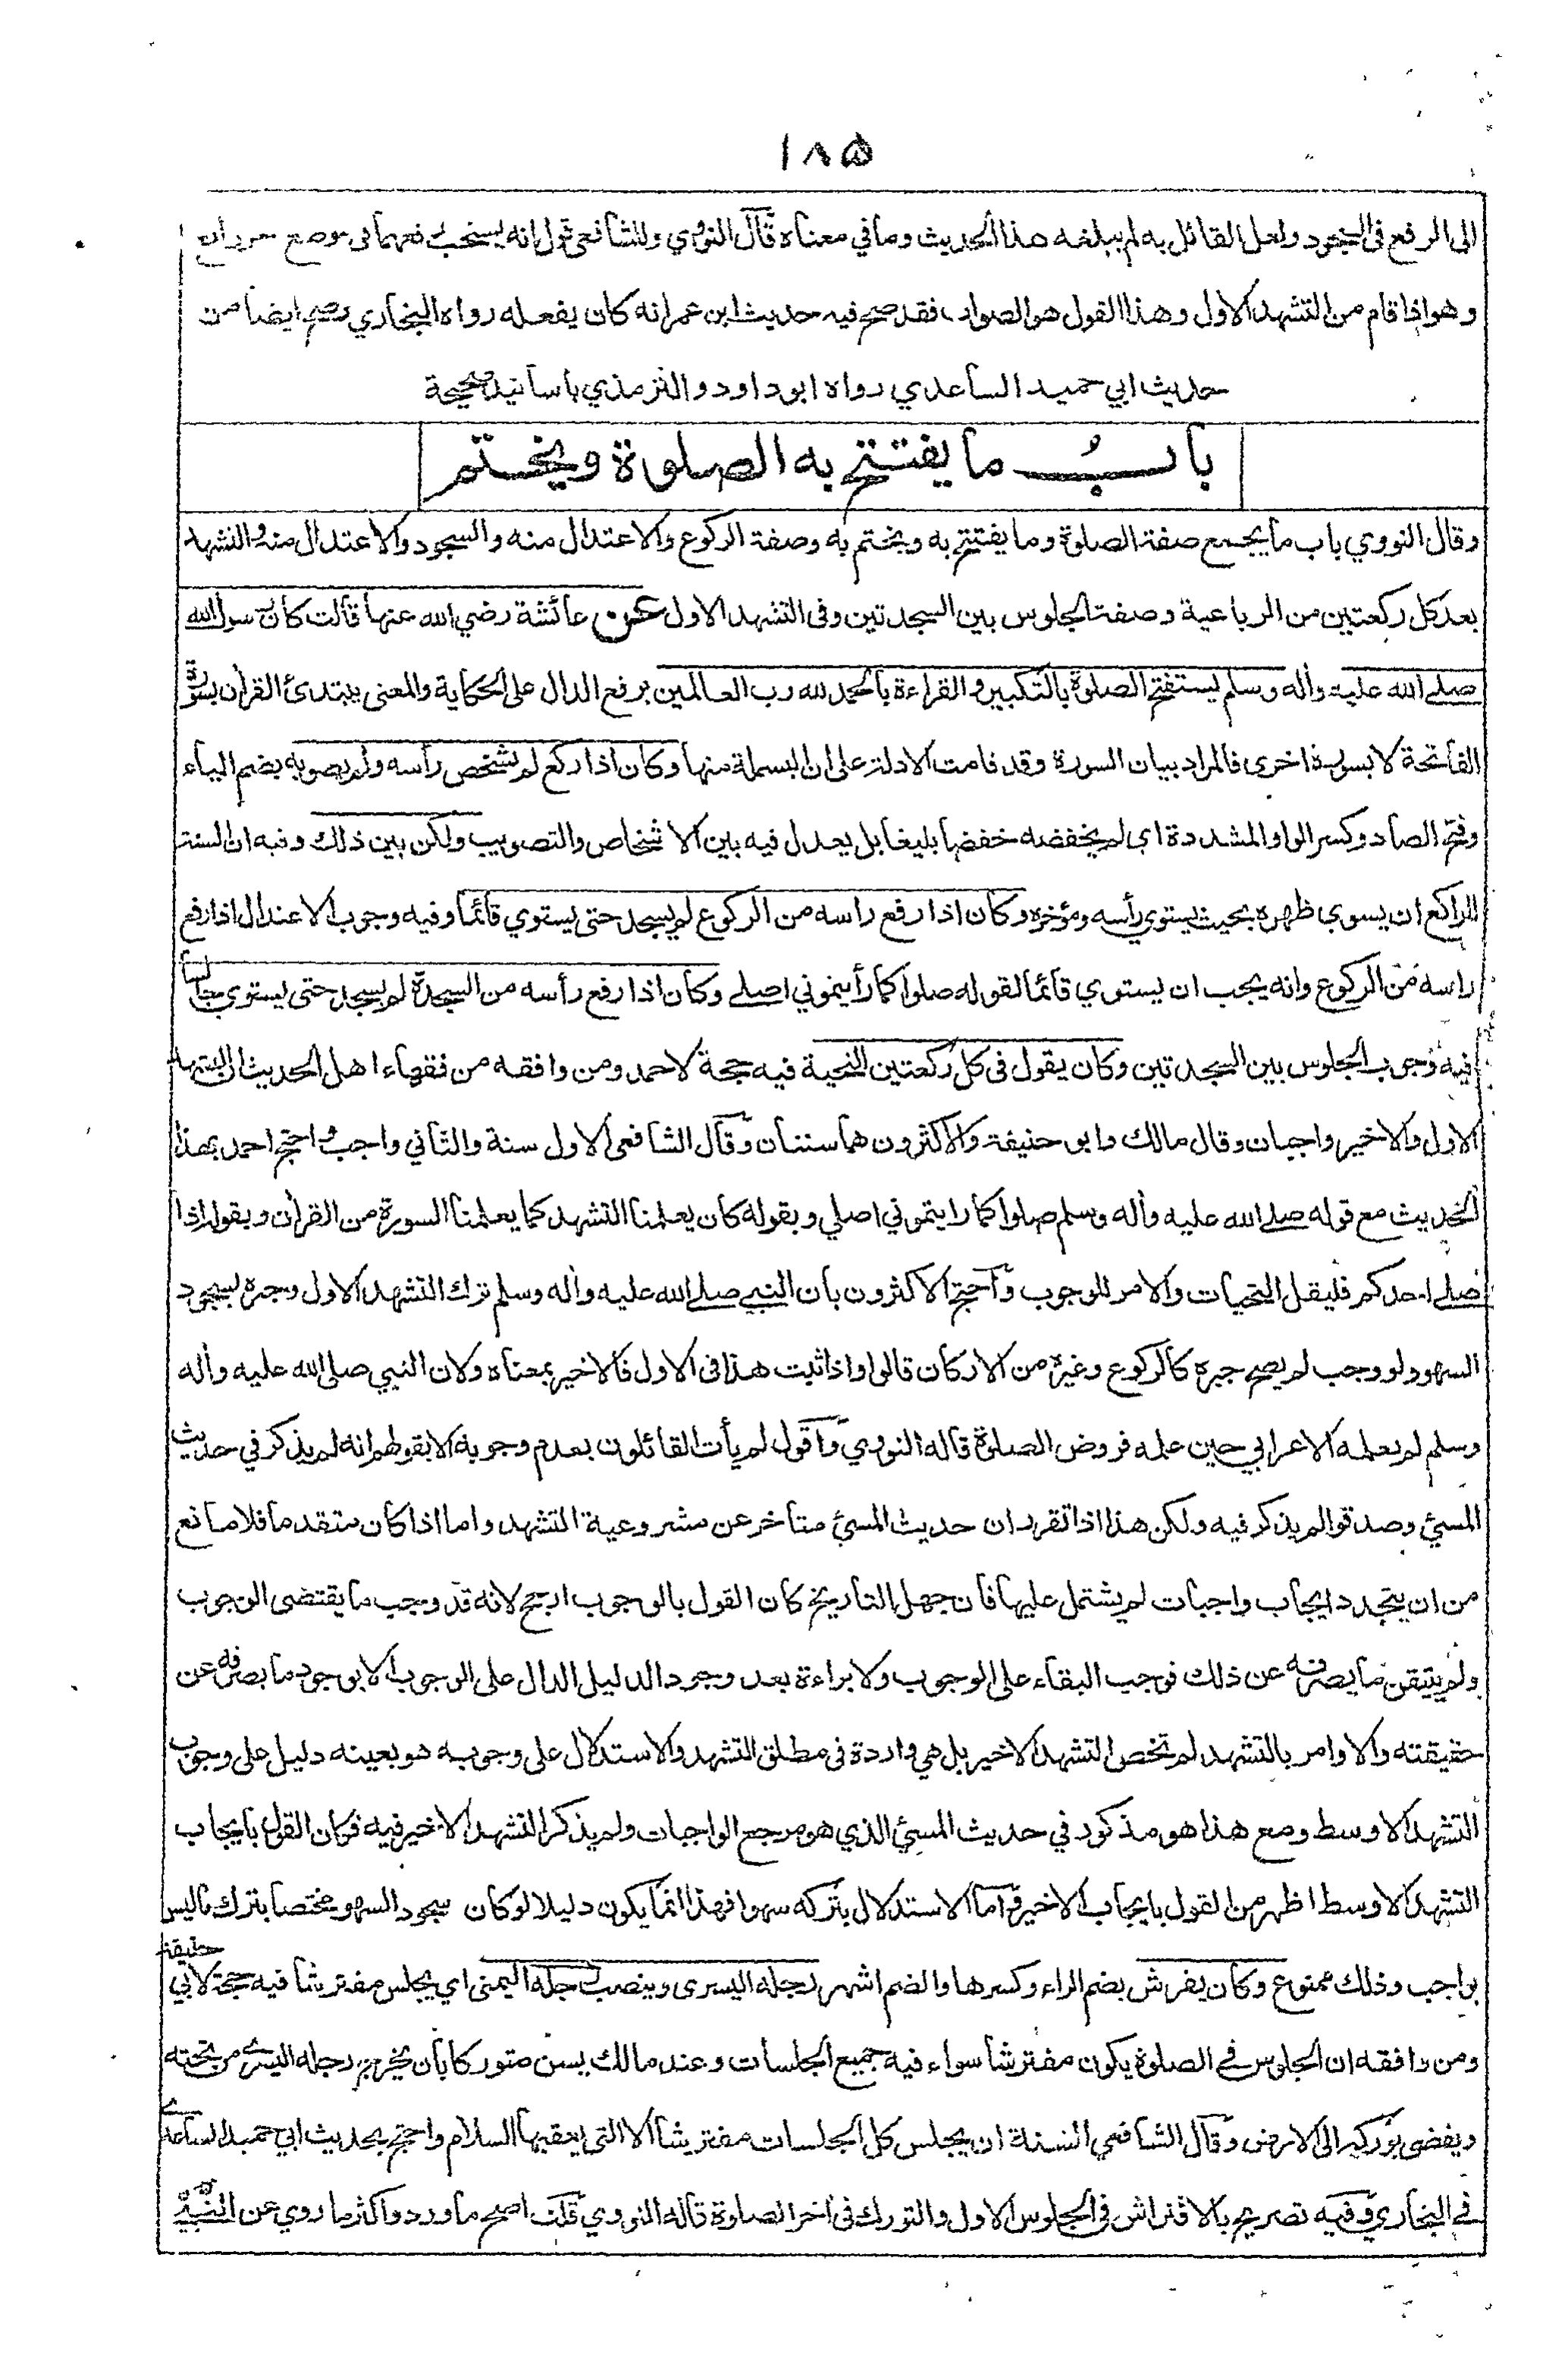 ١٨٥
الى الرفع فى السجود ولعل القائل به لم يبلغه هذا الحديث وما في معناه قال النووي وللشافعى قول انه يستحب رفعهما فى موضع رابع
وهو اذا قام من التشهد الاول وهذا القول هو الصواب فقد صح فيه حديث ابن عمر انه كان يفعله رواه البخاري وصح ايضا من
حديث ابي حميد الساعدي رواه ابو داود والترمذي بأسانيد صحيحة
باب ما يفتتح به الصلوة ويختم
وقال النووي باب ما يجمع صفة الصلوة وما يفتتح به ويختم به وصفة الركوع والاعتدال منه والسجود والاعتدال منه والتشهد
بعد كل ركعتين من الرباعية وصفة الجلوس بين السجدتين وفى التشهد الاول عن عائشة رضي الله عنها قالت كان رسول الله
صلى الله عليه وأله وسلم يستفتح الصلوة بالتكبير والقراءة بالحمد لله رب العالمين برفع الدال على الحكاية والمعنى يبتدئ القرأن بسورة
الفاتحة لا بسورة اخرى فالمراد بيان السورة وقد قامت الادلة على ان البسملة منها وكان اذا ركع لم يشخص رأسه ولم يصوبه بضم الياء
وفتح الصاد وكسر الواو المشددة اي لم يخفضه خفضا بليغا بل يعدل فيه بين الاشخاص والتصويب ولكن بين ذلك وفيه ان السنة
للراكع ان يسوي ظهره بحيث يستوي رأسه ومؤخره وكان اذا رفع راسه من الركوع لم يسجد حتى يستوي قائما وفيه وجوب الاعتدال اذا رفع
راسه من الركوع وانه يجب ان يستوي قائما لقوله صلوا كما رأيتموني اصلي وكان اذا رفع رأسه من السجدة لم يسجد حتى يستوي جالسا
فيه وجوب الجلوس بين السجدتين وكان يقول فى كل ركعتين التحية فيه حجة لاحمد ومن وافقه من فقهاء اهل الحديث ان التشهد
الاول والاخير واجبان وقال مالك وابو حنيفة والاكثرون هما سنتان وقال الشافعى الاول سنة والثاني واجب واحتج احمد بهذا
الحديث مع قوله صلى الله عليه وأله وسلم صلوا كما رايتموني اصلي وبقوله كان يعلمنا التشهد كما يعلمنا السورة من القرأن وبقوله اذا
صلى احدكم فليقل التحيات والامر للوجوب واحتج الاكثرون بأن النبي صلى الله عليه وأله وسلم ترك التشهد الاول وجبره بسجود
السهو ولو وجب لم يصح جبره كالركوع وغيره من الاركان قالوا واذا ثبت هذا فى الاول فالاخير بمعناه ولان النبي صلى الله عليه وأله
وسلم لم يعلمه الاعرابي حين علمه فروض الصلوة قاله النووي واقول لم يأت القائلون بعدم وجوبه الا بقولهم انه لم يذكر في حديث
المسئ وصدقوا لم يذكر فيه ولكن هذا اذا تقرر ان حديث المسئ متأخر عن مشروعية التشهد واما اذا كان متقدما فلا مانع
من ان يتجدد ايجاب واجبات لم يشتمل عليها فأن جهل التأريخ كان القول بالوجوب ارجح لانه قد وجب ما يقتضى الوجوب
ولم يتيقن ما يصرفه عن ذلك فوجب البقاء على الوجوب ولا براءة بعد وجود الدليل الدال على الوجوب الا بوجود ما يصرفه عن
حقيقته والاوامر بالتشهد لم تخص التشهد الاخير بل هي واردة فى مطلق التشهد والاستدلال على وجوبه هو بعينه دليل على وجوب
التشهد الاوسط ومع هذا هو مذكور في حديث المسئ الذي هو مرجع الواجبات ولم يذكر التشهد الاخير فيه فكان القول بأيجاب
التشهد الاوسط اظهر من القول بايجاب الاخير واما الاستدلال بتركه سهوا فهذا انما يكون دليلا لو كان سجود السهو مختصا بترك ما ليس
بواجب وذلك ممنوع وكان يفرش بضم الراء وكسرها والضم اشهر رجله اليسرى وينصب رجله اليمنى اي يجلس مفترشا فيه حجة لابي حنيفة
ومن وافقه ان الجلوس فى الصلوة يكون مفترشا سواء فيه جميع الجلسات وعند مالك يسن متوركا بأن يخرج رجله اليسرى من تحته
ويفضى بوركه الى الارض وقال الشافعي السنة ان يجلس كل الجلسات مفترشا الا التى يعقبها السلام واحتج بحديث ابي حميد الساعدي
فى البخاري وفيه تصريح بالافتراش فى الجلوس الاول والتورك فى أخر الصلوة قاله النووي قلت اصح ما ورد واكثر ما روي عن النبي